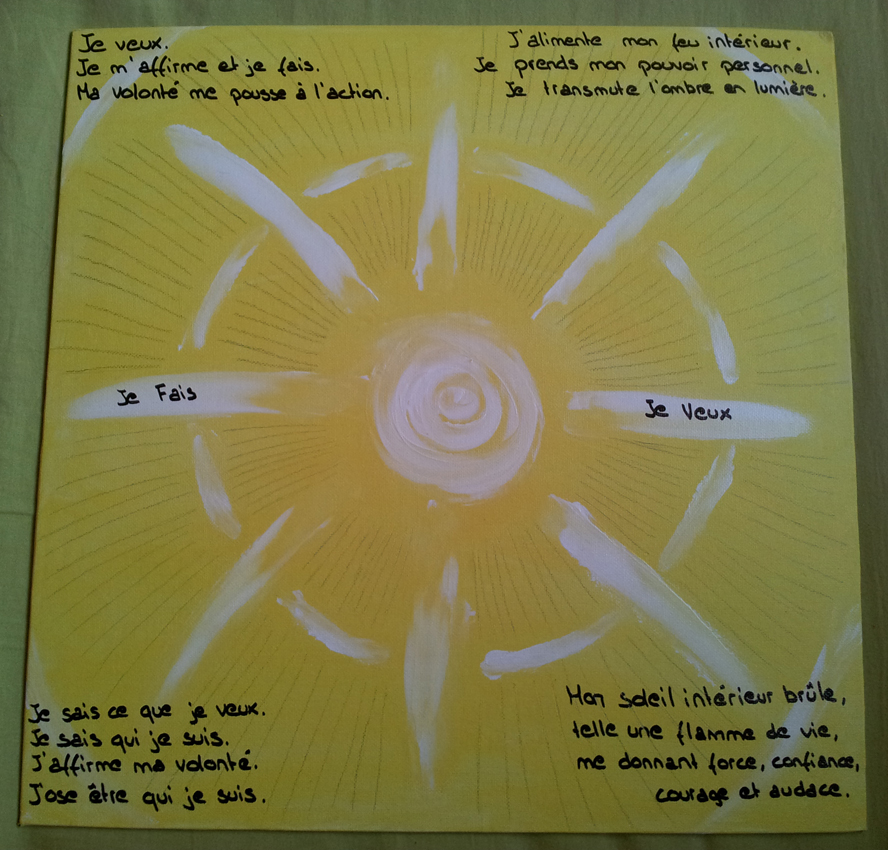 Je veux.
Je m'affirme et je fais.
Ma volonté me pousse à l'action.
J'alimente mon feu intérieur.
Je prends mon pouvoir personnel.
Je transmute l'ombre en lumière.
Je Fais
Je Veux
Je sais ce que je veux.
Je sais qui je suis.
J'affirme ma volonté.
J'ose être qui je suis.
Mon soleil intérieur brûle,
telle une flamme de vie,
me donnant force, confiance,
courage et audace.